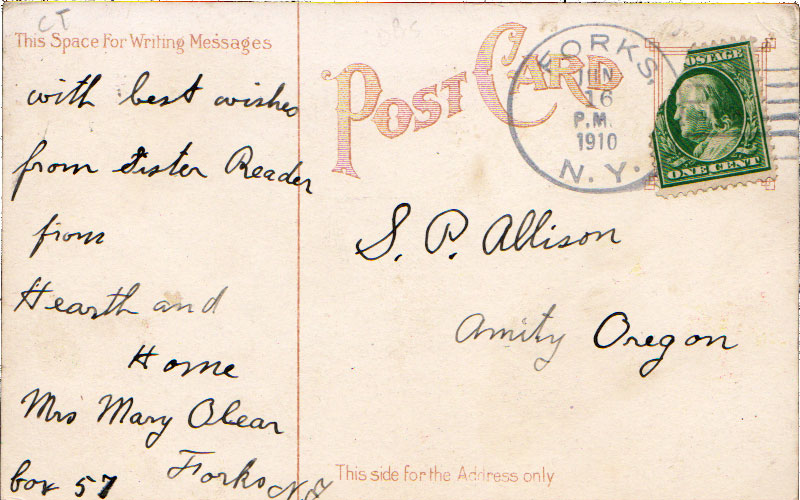 CT
This Space For Writing Messages
with best wishes
from sister Reader
from
Hearth and
Home
Mrs Mary Obear
Forks N.Y.
box 57
POST CARD
FORKS,
JUN
16
P.M.
1910
N.Y.
POSTAGE
ONE CENT
S. P. Allison
Amity Oregon
This side for the Address only